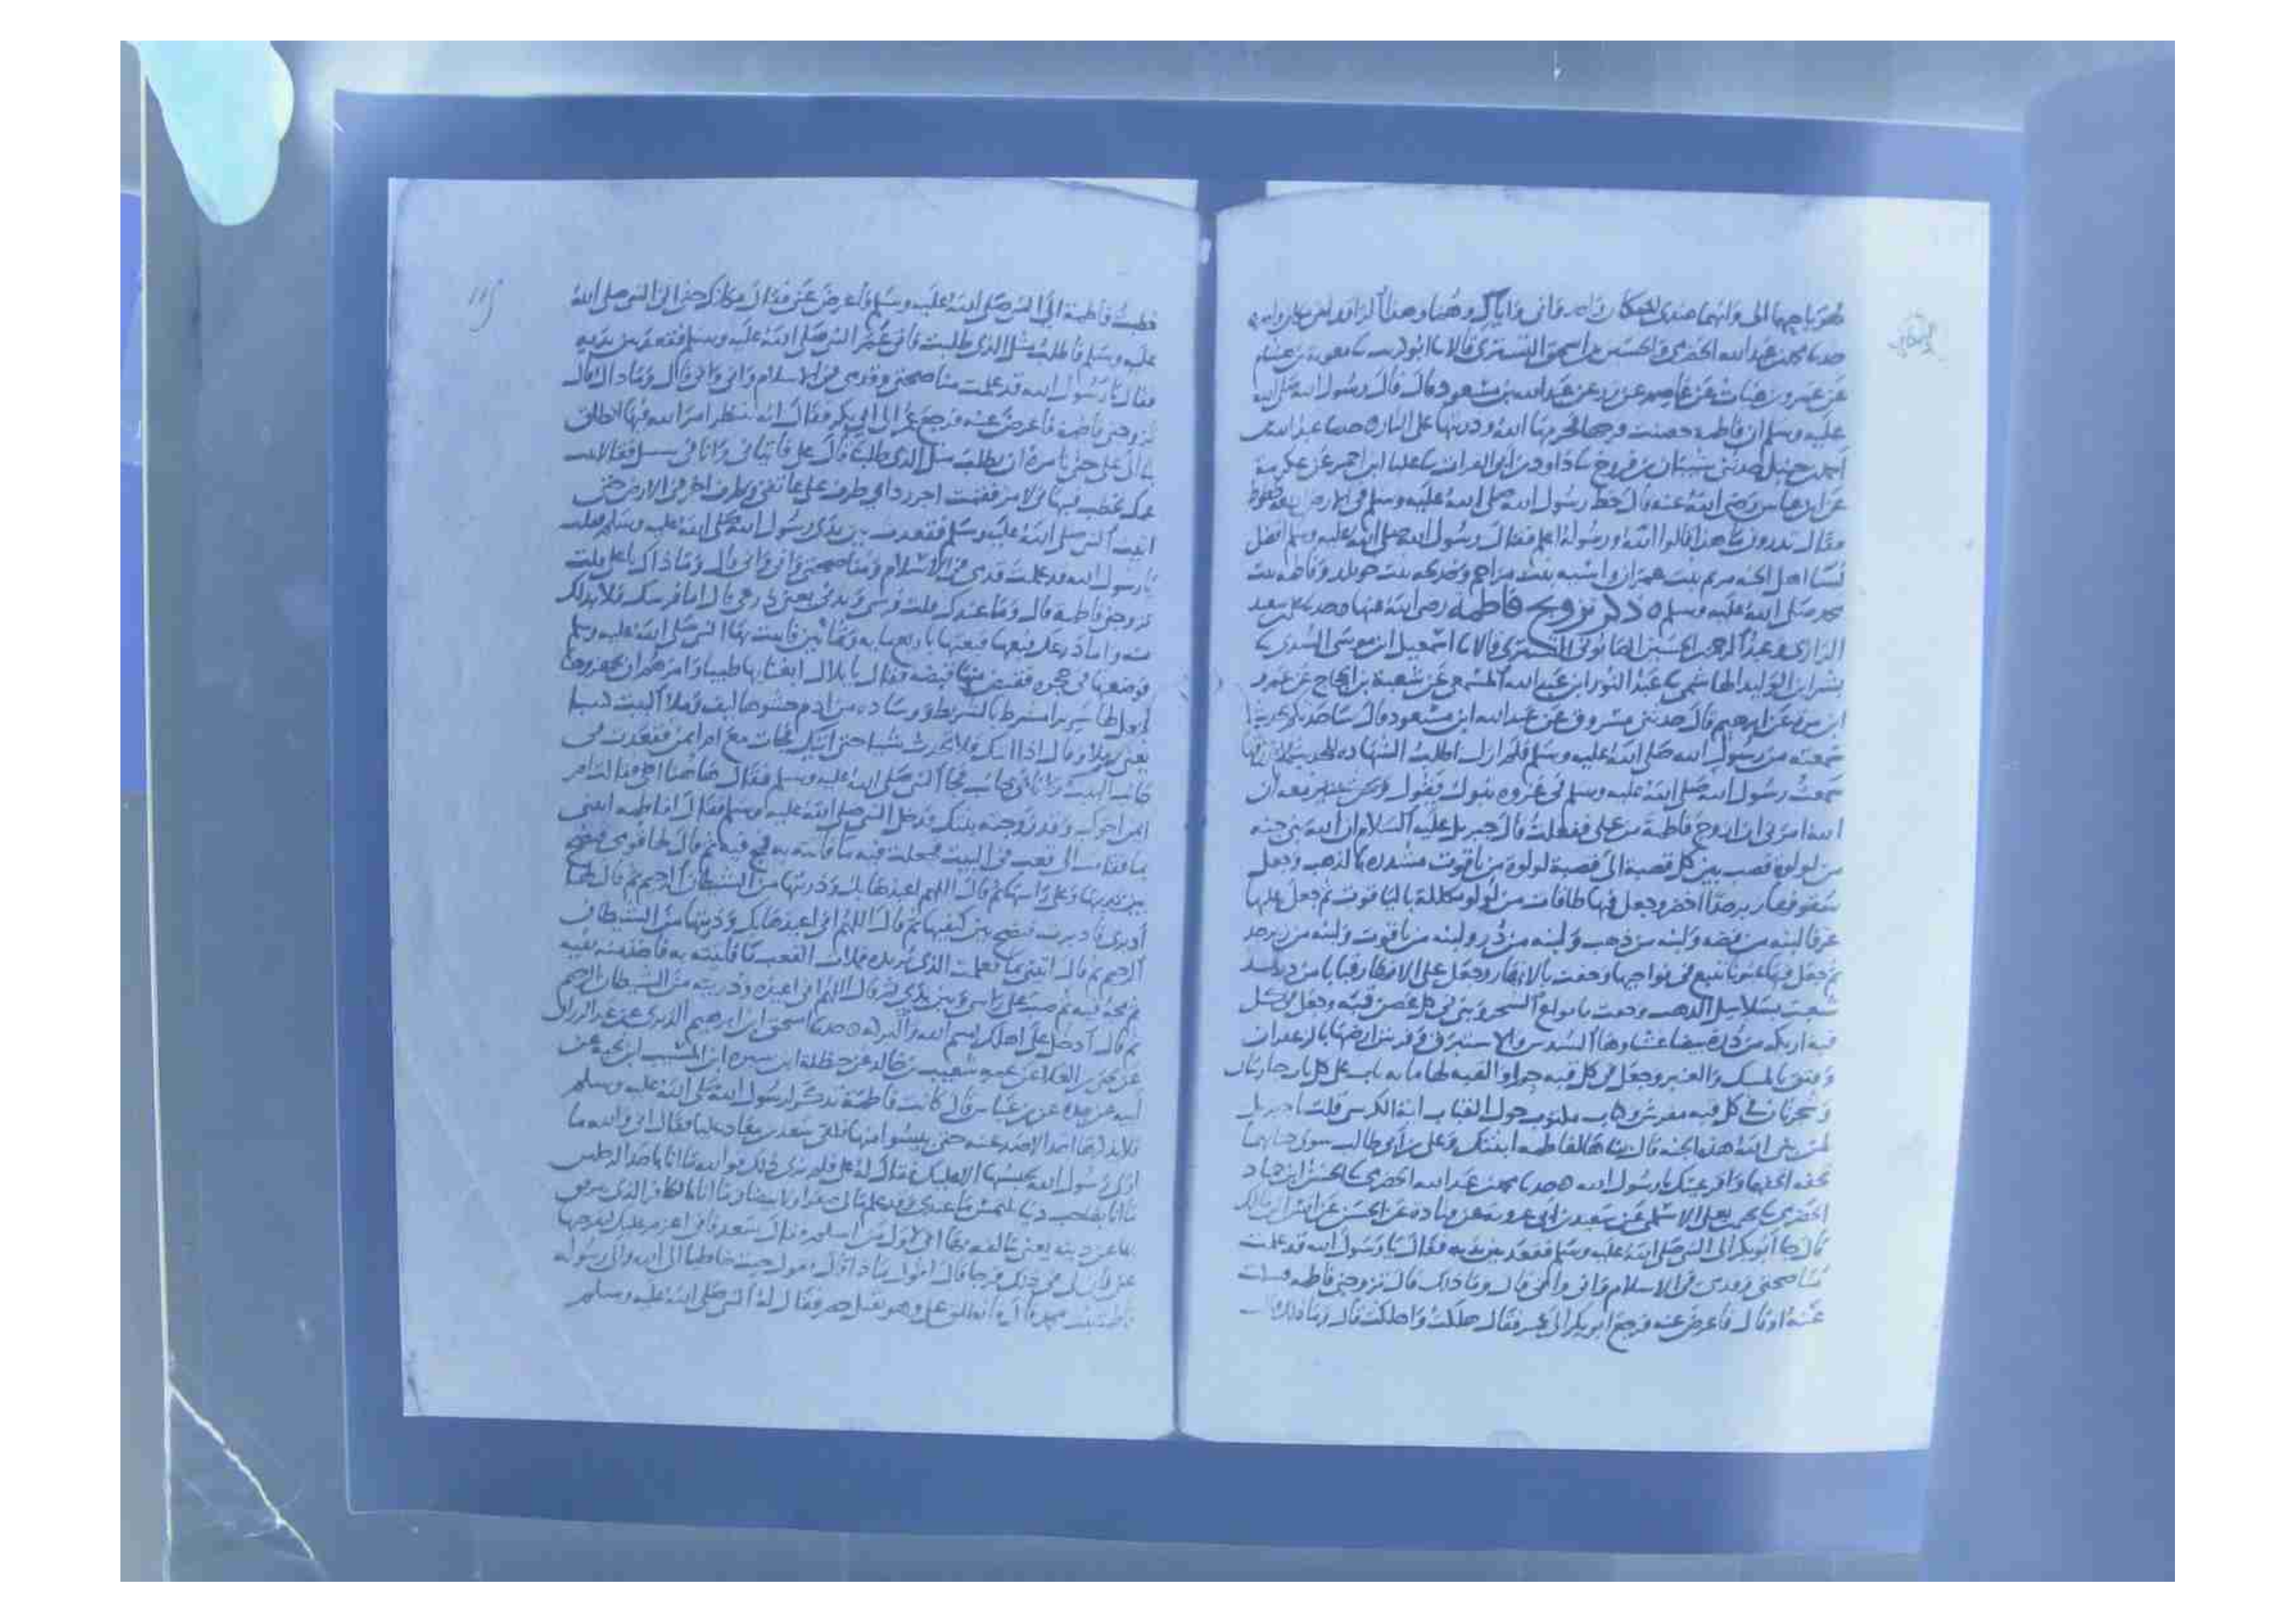 عليه وسلم ان فاطمة حصنت فرجها فحرمها الله وذريتها على النار حدثنا عبد الله بن
احمد بن حنبل حدثنى شيبان بن فروخ نا داود بن ابى الفرات نا علباء ابن احمر عن عكرمة
عن ابن عباس رضى الله عنه قال خط رسول الله صلى الله عليه وسلم فى الارض اربعة خطوط
فقال تدرون ما هذا قالوا الله ورسوله اعلم فقال رسول الله صلى الله عليه وسلم افضل
نسا اهل الجنه مريم بنت عمران واسيه بنت مزاحم وخديجه بنت خويلد وفاطمه بنت
محمد صلى الله عليه وسلم ذكر تزويج فاطمة رضى الله عنها حدثنا
الرازى وعبد الرحمن بن الحسين التسترى قالا نا اسمعيل ابن موسى السدى نا
بشر ابن الوليد الهاشمى نا عبد النور ابن عبد الله المسمعى عن شعبة بن الحجاج عن عمرو
ابن مرة عن ابرهيم قال حدثنى مسروق عن عبد الله ابن مسعود قال
سمعته من رسول الله صلى الله عليه وسلم فلم ازل اطلب الشهاده
سمعت رسول الله صلى الله عليه وسلم فى غزوه تبوك يقول ونحن نسير معه ان
الله امرنى ان ازوج فاطمة من على ففعلت قال جبريل عليه السلام ان الله بنى جنه
من لولوة قصب بين كل قصبة الى قصبة لولوة من ياقوت مشدره بالذهب وجعل
سقوفها زبرجدا اخضر وجعل فيها طاقات من لولو مكللة بالياقوت ثم جعل عليها
غرفا لبنه من فضه ولبنه من ذهب ولبنه من در ولبنه من ياقوت ولبنه من زبرجد
ثم جعل فيها عيونا تنبع فى نواحيها وحفت بالانهار وجعل على الانهار قبابا من در قد
شعبت بسلاسل الذهب وحفت بانواع الشجر وبنى فى كل غصن قبه وجعل فى كل
قبه اريكه من درة بيضا غشاوها السندس والاستبرق وفرش ارضها بالزعفران
وفتق بالمسك والعنبر وجعل فى كل قبه حورا والقبه لها مايه باب على كل باب جاريتان
وشجرتان فى كل قبه مفرش وكتاب مكتوب حول القباب اية الكرسى قلت يا جبريل
لمن بنى الله هذه الجنه قال بناها لفاطمه ابنتك وعلى بن ابى طالب سوى جنانهما
تحفه اتحفها واقر عينك يا رسول الله حدثنا محمد بن عبد الله الحضرمى نا الحسن بن حماد
الحضرمى نا يحيى بن يعلى الاسلمى عن سعيد بن ابى عروبة عن قتادة عن الحسن عن انس بن مالك
قال جا ابو بكر الى النبى صلى الله عليه وسلم فقعد بين يديه فقال يا رسول الله قد علمت
مناصحتى وقدمى فى الاسلام وانى وانى قال وما ذاك قال تزوجنى فاطمه فسكت
عنه او قال فاعرض عنه فرجع ابو بكر الى عمر فقال هلكت واهلكت قال وما ذاك قال
خطبت فاطمة الى النبى صلى الله عليه وسلم فاعرض عنى فقال مكانك حتى اتى النبى صلى الله
عليه وسلم فاطلب مثل الذى طلبت فاتى عمر النبى صلى الله عليه وسلم فقعد بين يديه
فقال يا رسول الله قد علمت مناصحتى وقدمى فى الاسلام وانى وانى قال وما ذاك قال
تزوجنى فاطمة فاعرض عنه فرجع عمر الى ابى بكر فقال انه ينتظر امر الله فيها انطلق
بنا الى على حتى نامره ان يطلب مثل الذى طلبنا قال على فاتيانى وانا فى فقالا
فقمت اجر رداى طرف على عاتقى وطرف اخر فى الارض حتى
اتيت النبى صلى الله عليه وسلم فقعدت بين يدى رسول الله صلى الله عليه وسلم فقلت
يا رسول الله قد علمت قدمى فى الاسلام ومناصحتى وانى وانى قال وما ذاك يا على قلت
تزوجنى فاطمة قال وما عندك قلت فرسى وبدنى يعنى درعى قال اما فرسك فلا بد لك
منه واما درعك فبعها فبعتها باربعمايه وثمانين فاتيت بها النبى صلى الله عليه وسلم
فوضعتها فى حجره فقبض منها قبضه فقال يا بلال ابغنا بها طيبا وامرهم ان يجهزوها
فجعل لها سرير مشرط بالشريط ووساده من ادم حشوها ليف وملا البيت كثيبا
يعنى رملا وقال اذا اتتك فلا تحدث شيا حتى اتيك فجات مع ام ايمن فقعدت فى
جانب البيت وانا فى جانب فجا النبى صلى الله عليه وسلم فقال هاهنا اخى فقالت ام
ايمن اخوك وقد زوجته بنتك فدخل النبى صلى الله عليه وسلم فقال لفاطمه ايتينى
بما فقامت الى قعب فى البيت فجعلت فيه ما فاتته به فمج فيه ثم قال لها قومى فنضح
بين ثدييها وعلى راسها ثم قال اللهم اعيذها بك وذريتها من الشيطان الرجيم ثم قال لها
ادبرى فادبرت فنضح بين كتفيها ثم قال اللهم انى اعيذها بك وذريتها من الشيطان
الرجيم ثم قال ايتينى بما فعلمت الذى يريده فملات القعب ما فاتيته به فاخذ منه بفيه
ثم مجه فيه ثم صب على راسى وبين يدى ثم قال اللهم انى اعيذه وذريته من الشيطان الرجيم
ثم قال ادخل على اهلك بسم الله والبركه حدثنا اسحق ابن ابرهيم الدبرى عن عبد الرزاق
عن يحيى بن العلا عن عمه شعيب بن خالد عن حنظلة ابن سبره ابن المسيب ابن نجبة عن
ابيه عن جده عن بن عباس قال كانت فاطمة تذكر لرسول الله صلى الله عليه وسلم
فلا يذكرها احد الا صد عنه حتى يئسوا منها فلقى سعد بن معاذ عليا فقال انى والله ما
ارى رسول الله يحبسها الا عليك فقال له على فلم ترى ذلك فوالله ما انا باحد الرجلين
ما انا بصاحب دنيا يلتمس ما عندى وقد علم مالى صفرا ولا بيضا وما انا بالكافر الذى يترفق
بها عن دينه يعنى يتالفه بها انى لاول من اسلم قال سعد فانى اعزم عليك لتفرجنها
عنى فان لى فى ذلك فرجا قال اقول ماذا قال تقول جيت خاطبا الى الله والى رسوله
فاطمة بنت محمد قال فانطلق على وهو ثقيل حصر فقال له النبى صلى الله عليه وسلم